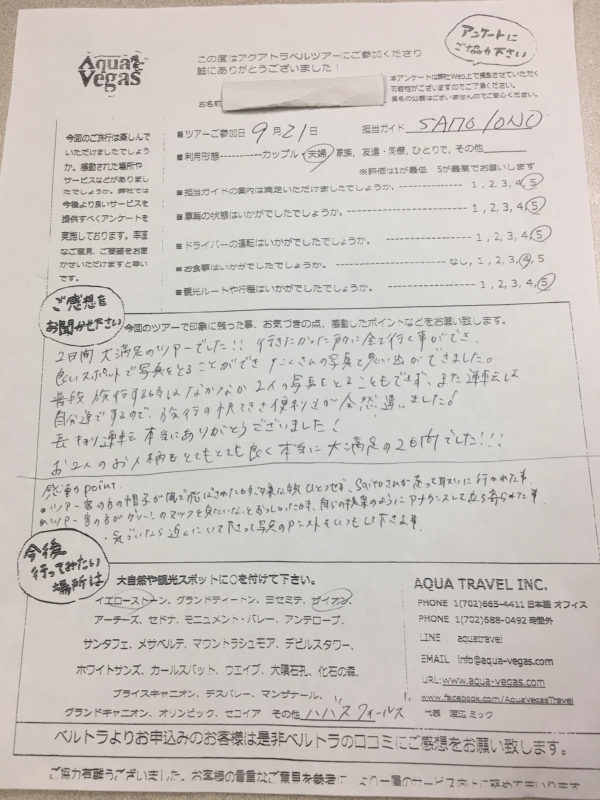 Aqua Vegas
この度はアクアトラベルツアーにご参加くださり
誠にありがとうございました！
アンケートに
ご協力下さい
お名前
本アンケートは弊社Web上で掲載させていただく
可能性がございますのでご了承ください。
真名の公表はございませんのでご安心ください。
今回のご旅行は楽しんで
いただけましたでしょう
か。感動された場所や
サービスなどがありまし
たでしょうか。弊社では
今後より良いサービスを
提供すべくアンケートを
実施しております。率直
なご意見、ご要望をお聞
かせいただけますと幸い
です。
■ツアーご参加日 9月21日 担当ガイド
■利用形態----------カップル・夫婦、家族、友達・同僚、ひとりで、その他
※評価は1が最低 5が最高でお願いします
■担当ガイドの案内は満足いただけましたでしょうか。---------------- 1, 2, 3, 4, 5
■車輌の状態はいかがでしたでしょうか。---------------- 1, 2, 3, 4, 5
■ドライバーの運転はいかがでしたでしょうか。---------------- 1, 2, 3, 4, 5
■お食事はいかがでしたでしょうか。---------------- なし, 1, 2, 3, 4, 5
■観光ルートや行程はいかがでしたでしょうか。---------------- 1, 2, 3, 4, 5
ご感想を
お聞かせ下さい
今回のツアーで印象に残った事、お気づきの点、感動したポイントなどをお願い致します。
2日間 大満足のツアーでした!! 行きたかった所に全て行く事ができ、
良いスポットで写真をとることができ たくさんの写真と思い出ができました。
普段 旅行する時はなかなか2人の写真をとることもできず、また運転は
自分達でするので、旅行の快てきさ便利さが全然違いました!
長い 運転 本当にありがとうございました!
お2人のお人柄もとてもとても良く本当に大満足の2日間でした!!!
感動のpoint.
ツアー客の方の帽子が風で飛ばされた時、嫌な顔ひとつせず、Saitoさんが走って取りに行かれた事.
ツアー客の方がグリーンのマックを見たいな、とおっしゃった時、自らの提案のようにアナウンスして立ち寄られた事
・気づいたら近くにいて下さって写真のアシストをいつもして下さる事.
今後
行ってみたい
場所は
大自然や観光スポットに○を付けて下さい。
イエローストーン、グランドティートン、ヨセミテ、ザイオン、
アーチーズ、セドナ、モニュメント・バレー、アンテロープ、
サンタフェ、メサベルテ、マウントラシュモア、デビルスタワー、
ホワイトサンズ、カールスバット、ウエイブ、大隕石孔、化石の森、
ブライスキャニオン、デスバレー、マンザナール、
グランドキャニオン、オリンピック、セコイア その他
AQUA TRAVEL INC.
PHONE 1(702)665-4411 日本語 オフィス
PHONE 1(702)688-0492 時間外
LINE aquatravel
EMAIL info@aqua-vegas.com
URL:www.aqua-vegas.com
www.facebook.com/AquaVegasTravel
代表 渡辺 ミック
ベルトラよりお申込みのお客様は是非ベルトラの口コミにご感想をお願い致します。
ご協力有難うございました。お客様の貴重なご意見を参考に、より一層のサービス向上に努めてまいります